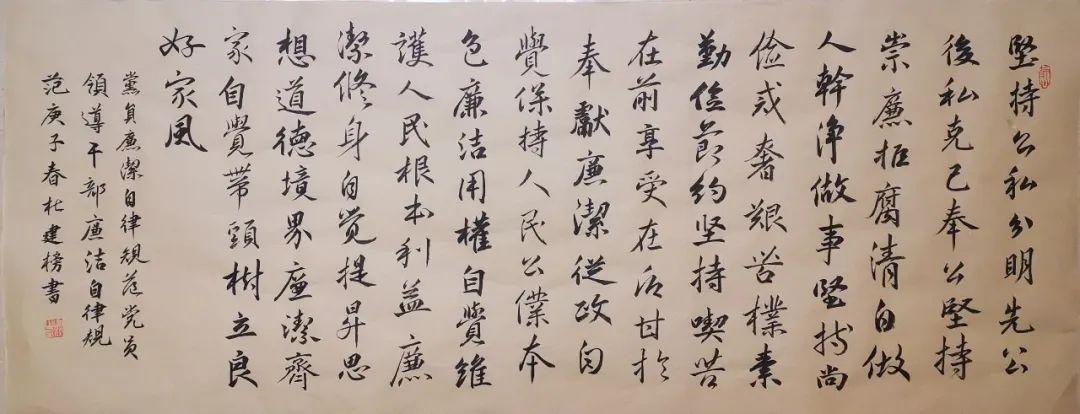 堅持公私分明先公
後私克己奉公堅持
崇廉拒腐清白做
人幹淨做事堅持尚
俭戒奢艱苦樸素
勤俭節約坚持喫苦
在前享受在后甘於
奉獻廉潔從政自
覺保持人民公僕本
色廉洁用權自覺維
護人民根本利益廉
潔修身自觉提昇思
想道德境界廉潔齊
家自覺帶頭樹立良
好家风
黨員廉潔自律規范党员
領導干部廉洁自律規
范庚子春杜建榜書